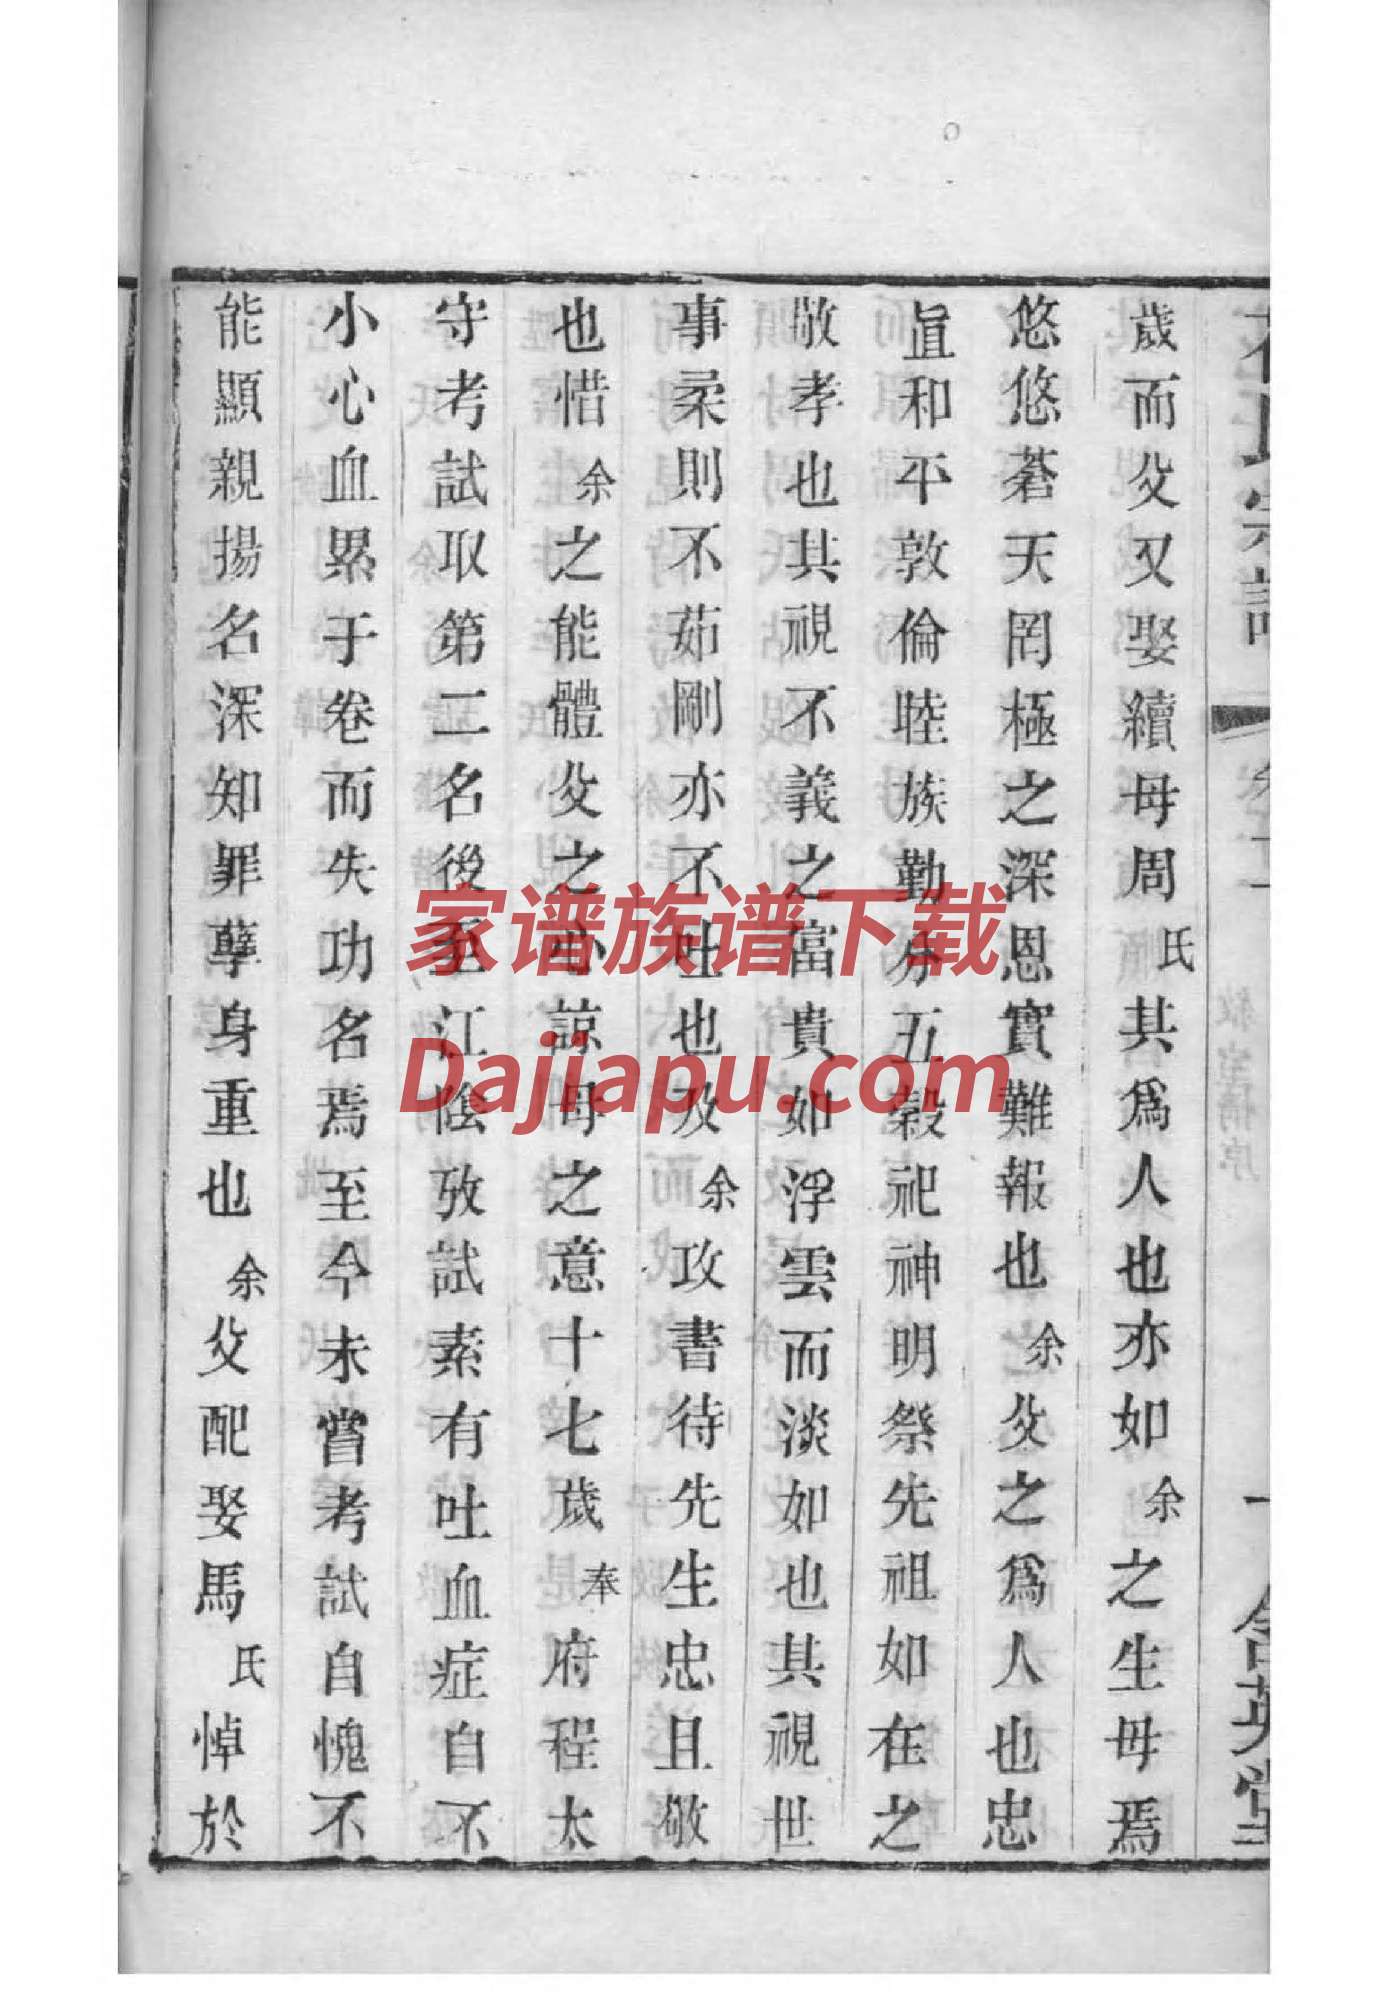 歲而父又娶續母周氏其爲人也亦如余之生母焉
悠悠蒼天罔極之深恩實難報也余父之爲人也忠
眞和平敦倫睦族勤分五穀祀神明祭先祖如在之
敬孝也其視不義之富貴如浮雲而淡如也其視世
事柔則不茹剛亦不吐也及余攻書待先生忠且敬
也惜余之能體父之心諒母之意十七歲奉府程太
守考試取第二名後至江陰攷試素有吐血症自不
小心血累于卷而失功名焉至今未嘗考試自愧不
能顯親揚名深知罪孽身重也余父配娶馬氏悼於
家谱族谱下载
Dajiapu.com